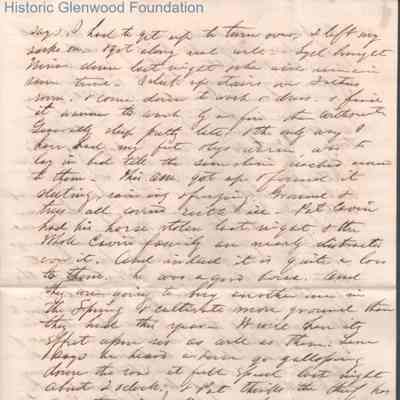 Historic Glenwood Foundation
says I had to get up to turn over, I left my
socks on & got along real well. Syd brought
Miss down last night who will remain
some time. I sleep up stairs in
room, & come down to wash & dress. & find
it warmer to wash by a fire than without
Generally sleep pretty late, & the only way I
have had my feet
lay in bed till the sunshine reached around
to them. This A.M. got up & found it
sleeting, raining & freezing. Ground &
trees all covered with ice. Pet Cavin
had his horse stolen last night & the
Whole Cavin family are nearly distracted
over it. And indeed it is quite a loss
to them. he was a good horse. And
they were going to buy another one in
the Spring & cultivate more ground than
they had this year. It will have its
effect upon us as well as them. Sam
says he heard a horse go galloping
down the road at full speed last night
about 2 o'clock, & Pet thinks the thief has